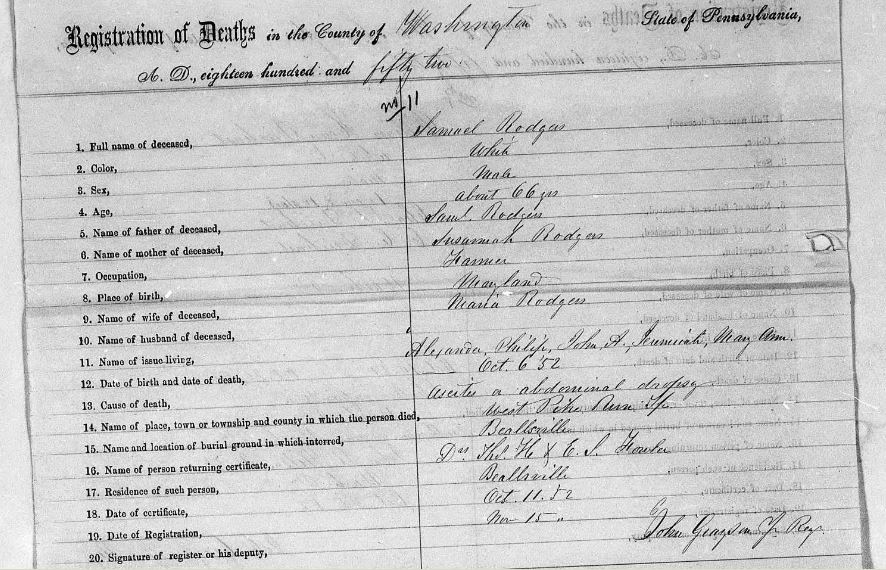 Registration of Deaths in the County of Washington State of Pennsylvania,
A. D., eighteen hundred and fifty two
No 11
1. Full name of deceased, Samuel Rodgers
2. Color, White
3. Sex, Male
4. Age, about 66 yrs
5. Name of father of deceased, Saml Rodgers
6. Name of mother of deceased, Susannah Rodgers
7. Occupation, Farmer
8. Place of birth, Maryland
9. Name of wife of deceased, Maria Rodgers
10. Name of husband of deceased, "
11. Name of issue living, Alexander, Philip, John A., Jeremiah, Mary Ann.
12. Date of birth and date of death, Oct. 6 '52
13. Cause of death, Ascites or abdominal dropsy
14. Name of place, town or township and county in which the person died, West Pike Run Tp.
15. Name and location of burial ground in which interred, Beallsville
16. Name of person returning certificate, Drs Thos. H & E. S. Fowler
17. Residence of such person, Beallsville
18. Date of certificate, Oct. 11. 52
19. Date of Registration, Nov 15 "
20. Signature of register or his deputy, John Grayson Jr Reg.